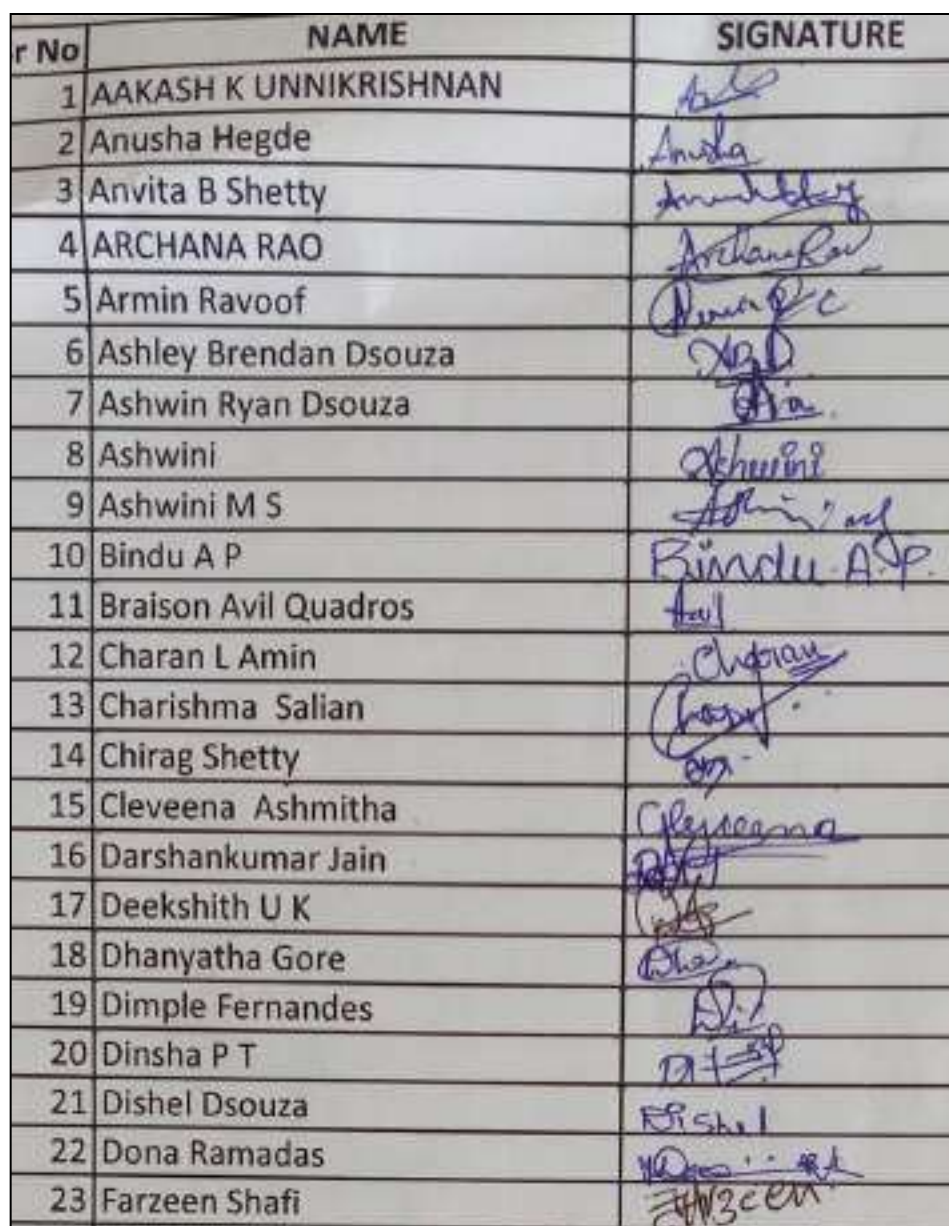 r No NAME SIGNATURE
1 AAKASH K UNNIKRISHNAN
2 Anusha Hegde Anusha
3 Anvita B Shetty
4 ARCHANA RAO Archana Rao
5 Armin Ravoof
6 Ashley Brendan Dsouza
7 Ashwin Ryan Dsouza
8 Ashwini Ashwini
9 Ashwini M S
10 Bindu A P Bindu A.P.
11 Braison Avil Quadros
12 Charan L Amin Charan
13 Charishma Salian
14 Chirag Shetty
15 Cleveena Ashmitha Cleveena
16 Darshankumar Jain
17 Deekshith U K
18 Dhanyatha Gore
19 Dimple Fernandes
20 Dinsha P T
21 Dishel Dsouza Dishel
22 Dona Ramadas
23 Farzeen Shafi Farzeen